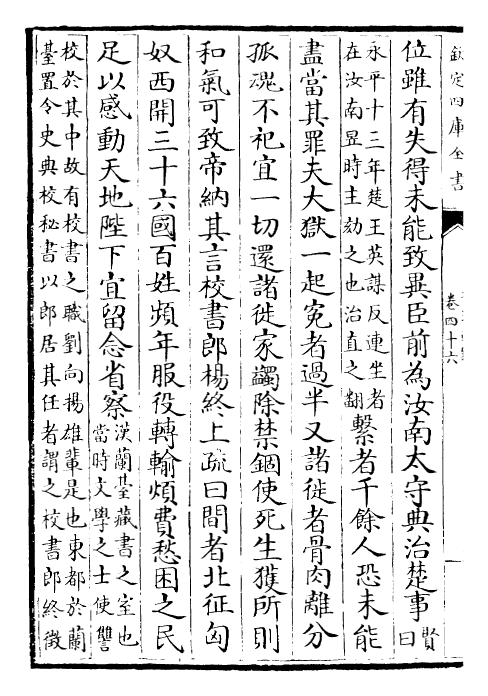 欽定四庫全書
卷四十六
位雖有失得未能致異臣前為汝南太守典治楚事
賢
曰
永平十三年楚王英謀反連坐者
在汝南昱時主劾之也治直之翻
繫者千餘人恐未能
盡當其罪夫大獄一起冤者過半又諸徙者骨肉離分
孤魂不祀宜一切還諸徙家蠲除禁錮使死生獲所則
和氣可致帝納其言校書郎楊終上疏曰間者北征匈
奴西開三十六國百姓頻年服役轉輸煩費愁困之民
足以感動天地陛下宜留念省察
漢蘭臺藏書之室也
當時文學之士使讐
校於其中故有校書之職劉向揚雄輩是也東都於蘭
臺置令史典校秘書以郎居其任者謂之校書郎終徵